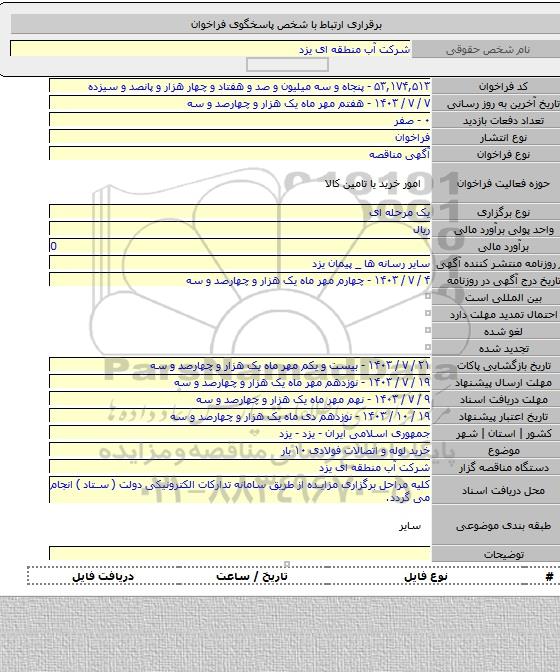 برقراری ارتباط با شخص پاسخگوی فراخوان
نام شخص حقوقی شرکت آب منطقه ای یزد
کد فراخوان ۵۳,۱۷۴,۵۱۳ - پنجاه و سه میلیون و صد و هفتاد و چهار هزار و پانصد و سیزده
تاریخ آخرین به روز رسانی ۷ / ۷ / ۱۴۰۳ - هفتم مهر ماه یک هزار و چهارصد و سه
تعداد دفعات بازدید ۰ - صفر
نوع انتشار فراخوان
نوع فراخوان آگهی مناقصه
حوزه فعالیت فراخوان امور خرید یا تامین کالا
نوع برگزاری یک مرحله ای
واحد پولی برآورد مالی ریال
برآورد مالی 0
روزنامه منتشر کننده آگهی سایر رسانه ها _ پیمان یزد
تاریخ درج آگهی در روزنامه ۴ / ۷ / ۱۴۰۳ - چهارم مهر ماه یک هزار و چهارصد و سه
بین المللی است
احتمال تمدید مهلت دارد
لغو شده
تجدید شده
تاریخ بازگشایی پاکات ۲۱ / ۷ / ۱۴۰۳ - بیست و یکم مهر ماه یک هزار و چهارصد و سه
مهلت ارسال پیشنهاد ۱۹ / ۷ / ۱۴۰۳ - نوزدهم مهر ماه یک هزار و چهارصد و سه
مهلت دریافت اسناد ۹ / ۷ / ۱۴۰۳ - نهم مهر ماه یک هزار و چهارصد و سه
تاریخ اعتبار پیشنهاد ۱۹ / ۱۰ / ۱۴۰۳ - نوزدهم دی ماه یک هزار و چهارصد و سه
کشور | استان | شهر جمهوری اسلامی ایران - یزد - یزد
موضوع خرید لوله و اتصالات فولادی ۱۰ بار
دستگاه مناقصه گزار شرکت آب منطقه ای یزد
محل دریافت اسناد کلیه مراحل برگزاری مزایده از طریق سامانه تدارکات الکترونیکی دولت ( ستاد ) انجام
می گردد.
طبقه بندی موضوعی سایر
توضیحات
# نوع فایل تاریخ / ساعت دریافت فایل